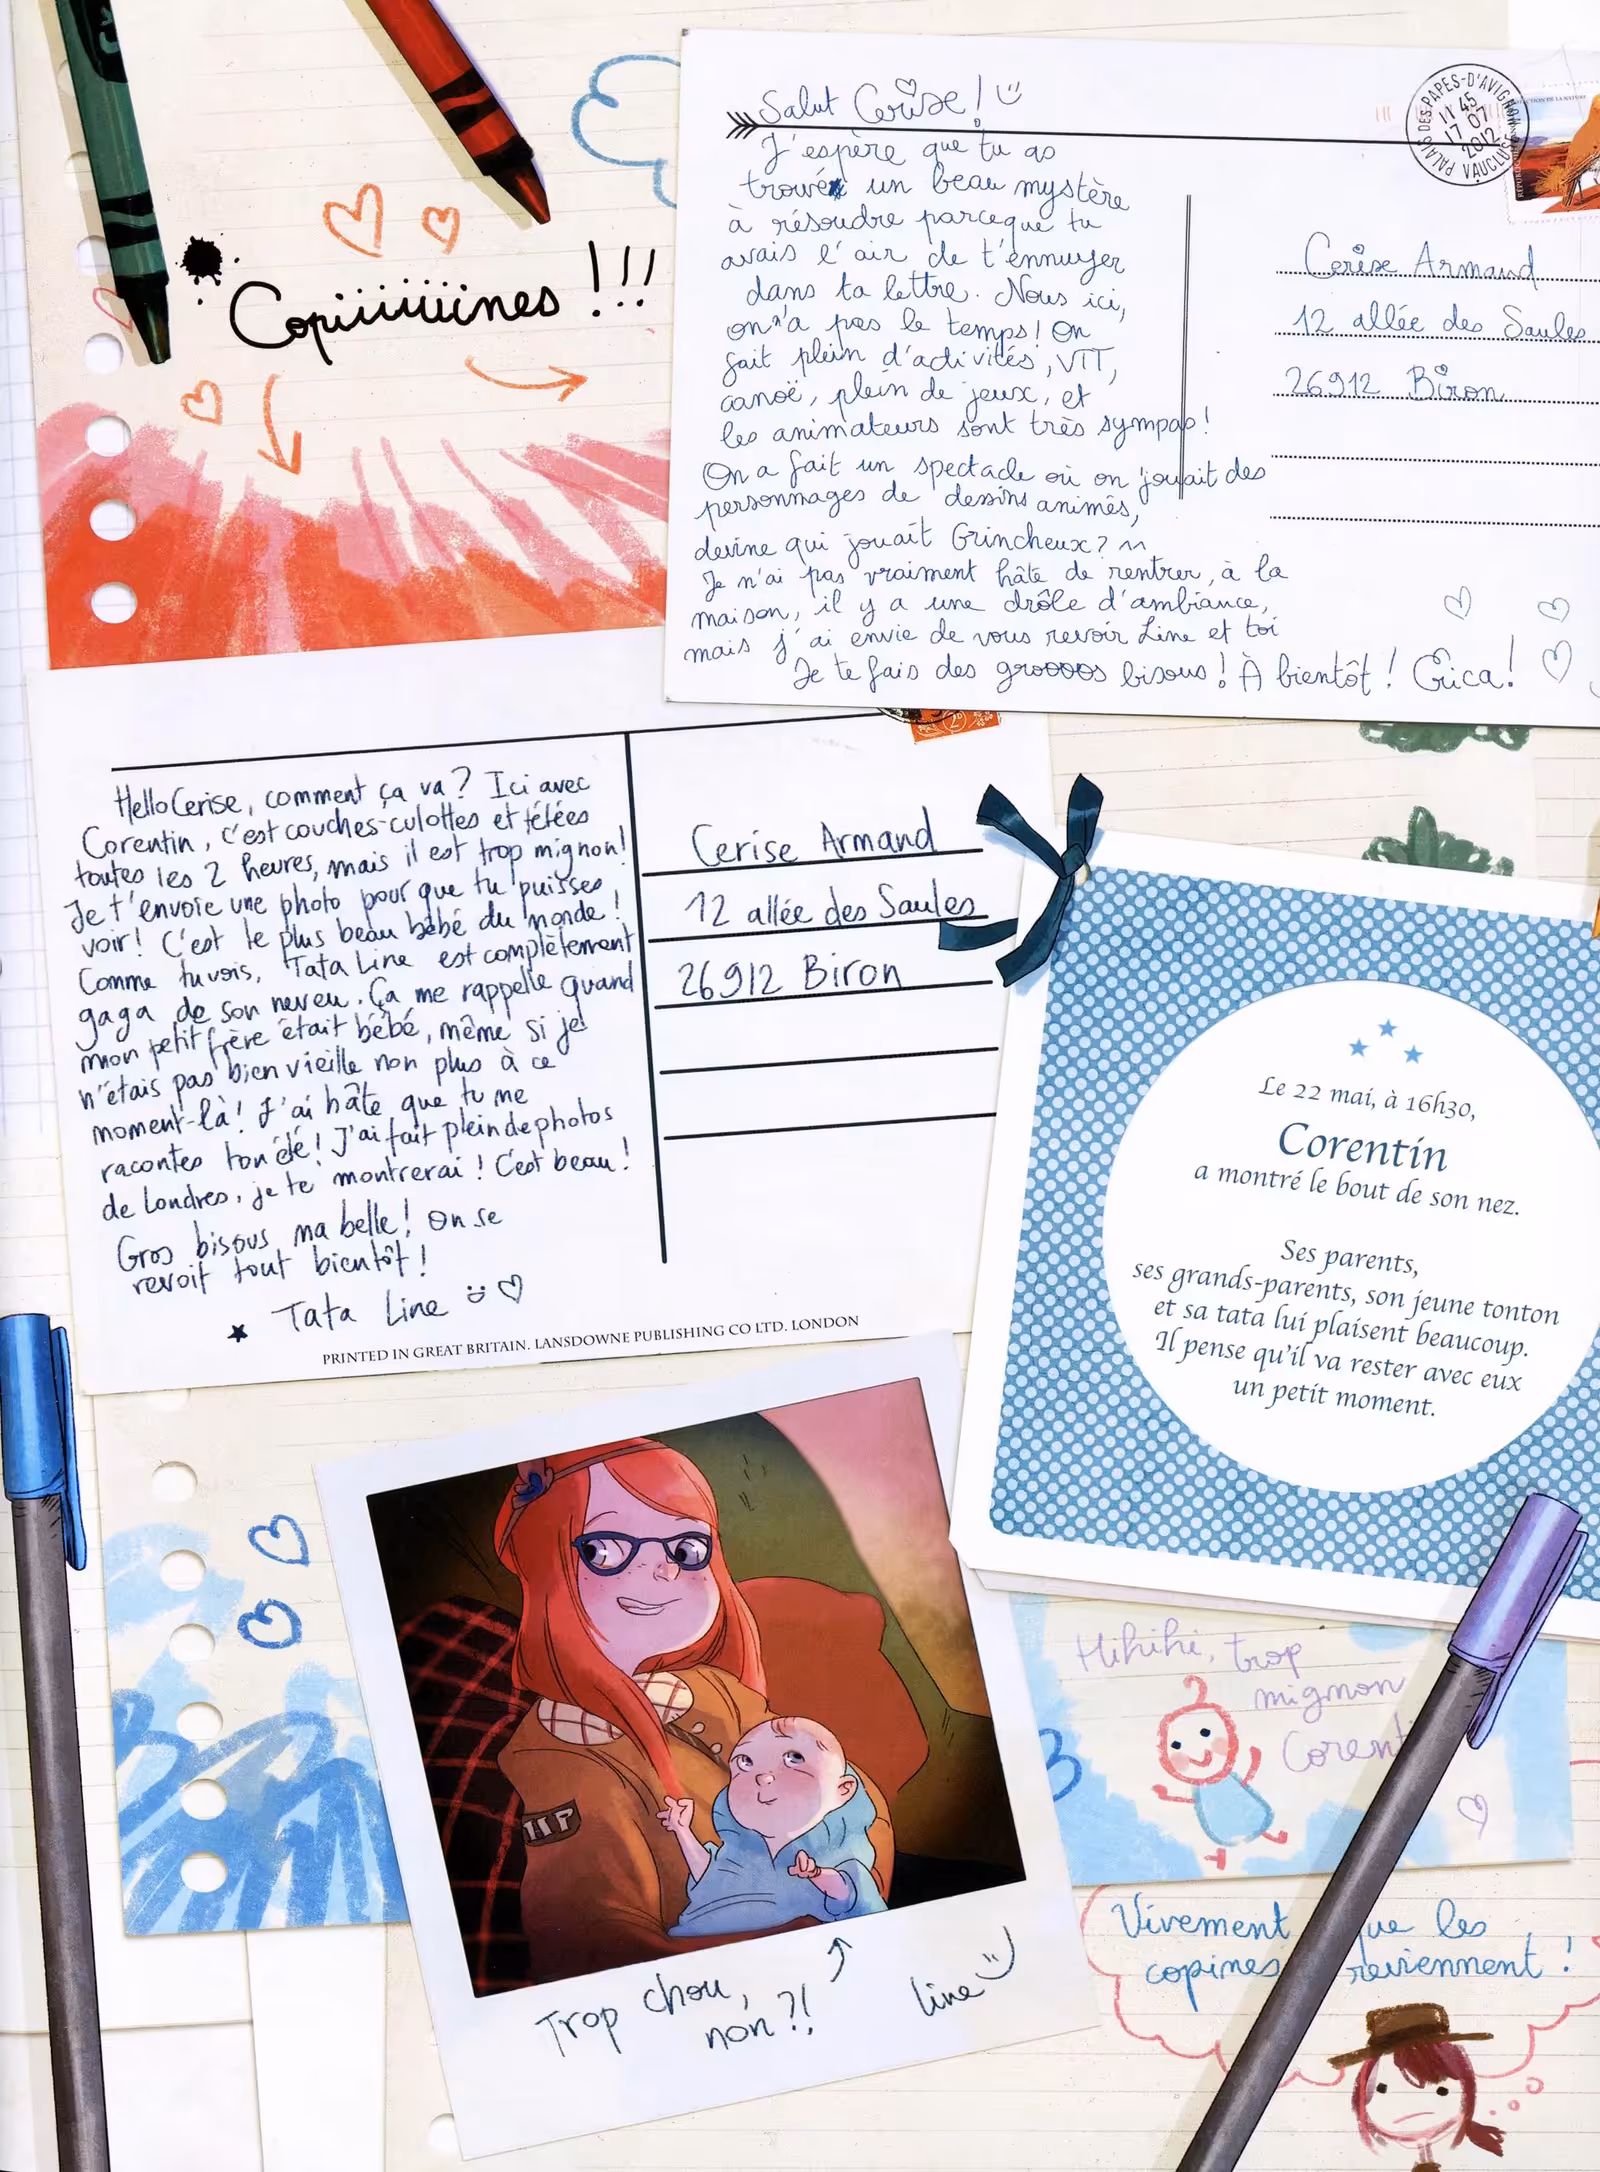 Copiiiiiiines !!!
Salut Cerise !
J'espère que tu as
trouvé un beau mystère
à résoudre parceque tu
avais l'air de t'ennuyer
dans ta lettre. Nous ici,
on n'a pas le temps ! On
fait plein d'activités, VTT,
canoë, plein de jeux, et
les animateurs sont très sympas !
On a fait un spectacle où on jouait des
personnages de dessins animés,
devine qui jouait Grincheux ? ^^
Je n'ai pas vraiment hâte de rentrer, à la
maison, il y a une drôle d'ambiance,
mais j'ai envie de vous revoir Line et toi
Je te fais des grooooos bisous ! À bientôt ! Erica !
PALAIS-DES-PAPES-D'AVIGNON
11 45
17 07
2012
VAUCLUSE
Cerise Armand
12 allée des Saules
26912 Biron
Hello Cerise, comment ça va ? Ici avec
Corentin, c'est couches-culottes et tétées
toutes les 2 heures, mais il est trop mignon !
Je t'envoie une photo pour que tu puisses
voir ! C'est le plus beau bébé du monde !
Comme tu vois, Tata Line est complètement
gaga de son neveu. Ça me rappelle quand
mon petit frère était bébé, même si je
n'étais pas bien vieille non plus à ce
moment-là ! J'ai hâte que tu me
racontes ton été ! J'ai fait plein de photos
de Londres, je te montrerai ! C'est beau !
Gros bisous ma belle ! On se
revoit tout bientôt !
Tata Line
PRINTED IN GREAT BRITAIN. LANSDOWNE PUBLISHING CO LTD. LONDON
Cerise Armand
12 allée des Saules
26912 Biron
Le 22 mai, à 16h30,
Corentin
a montré le bout de son nez.
Ses parents,
ses grands-parents, son jeune tonton
et sa tata lui plaisent beaucoup.
Il pense qu'il va rester avec eux
un petit moment.
Trop chou,
non ?!
Line
Hihihi, trop
mignon
Corent
Vivement que les
copines reviennent !